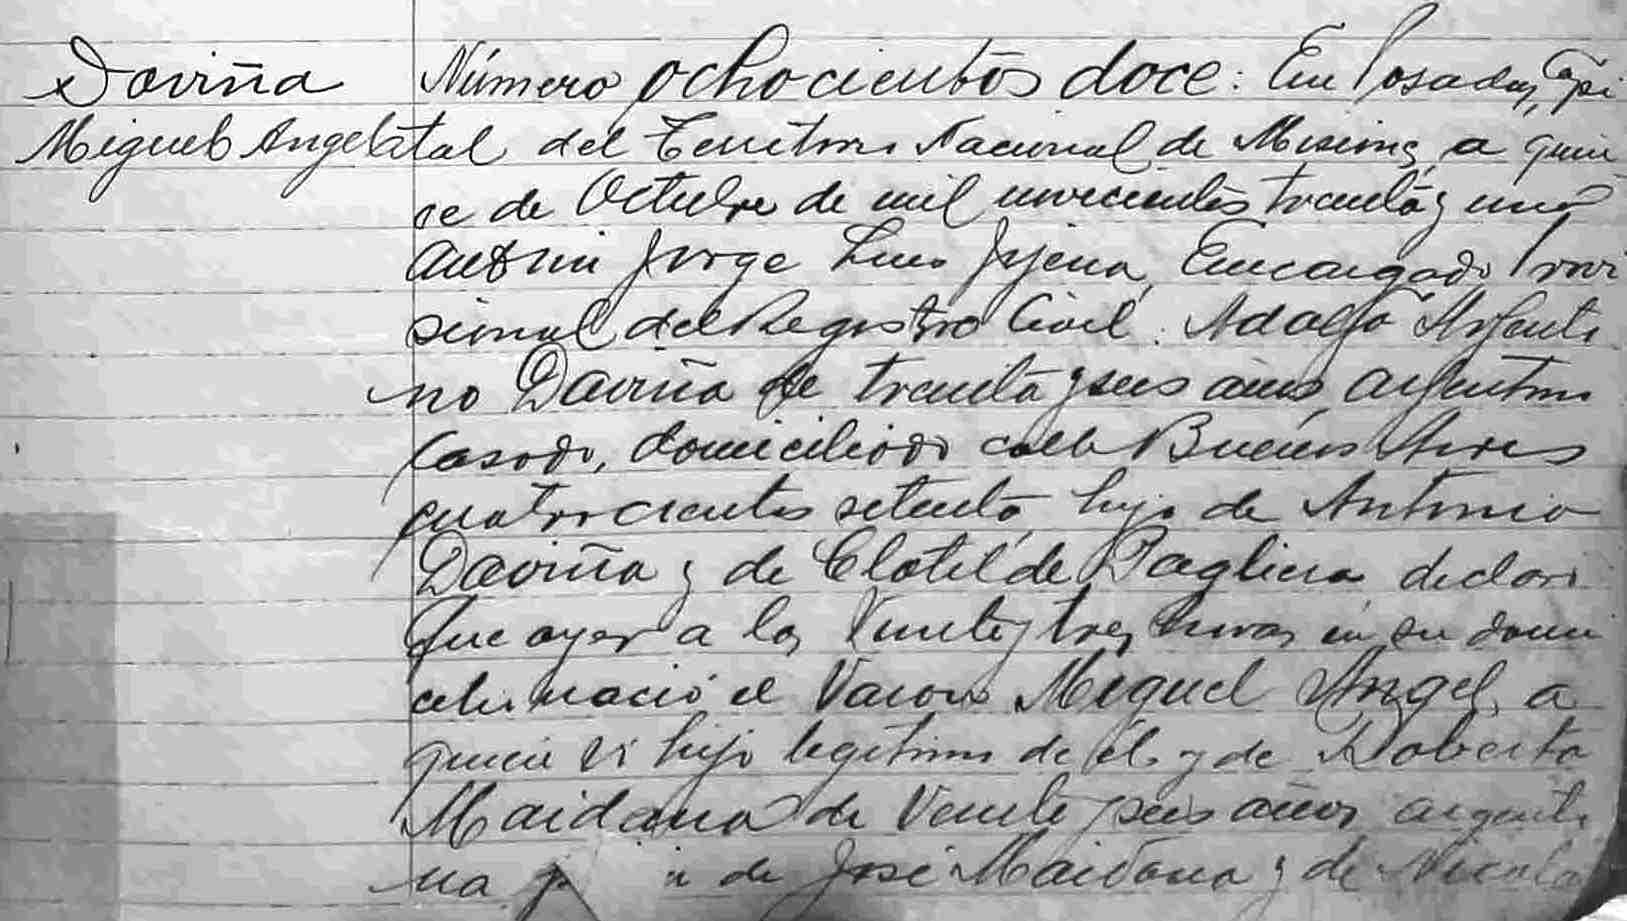 Daviña
Miguel Angel
Número ochocientos doce: En Posadas, Capi
tal del Territorio Nacional de Misiones, a quin
ce de Octubre de mil novecientos treinta y uno
ante mi Jorge Luis Jijena, Encargado Provi
sional del Registro Civil. Adolfo Argenti
no Daviña de treinta y seis años, argentino
Casado, domiciliado calle Buenos Aires
cuatrocientos setenta, hijo de Antonio
Daviña y de Clotilde Pagliera, declaró
Que ayer a las Veinte y tres horas en su domi
cilio nació el Varon Miguel Angel, a
quien vi hijo legítimo de él y de Roberta
Maidana de Veinte seis años argenti
na de José Maidana y de Nicola